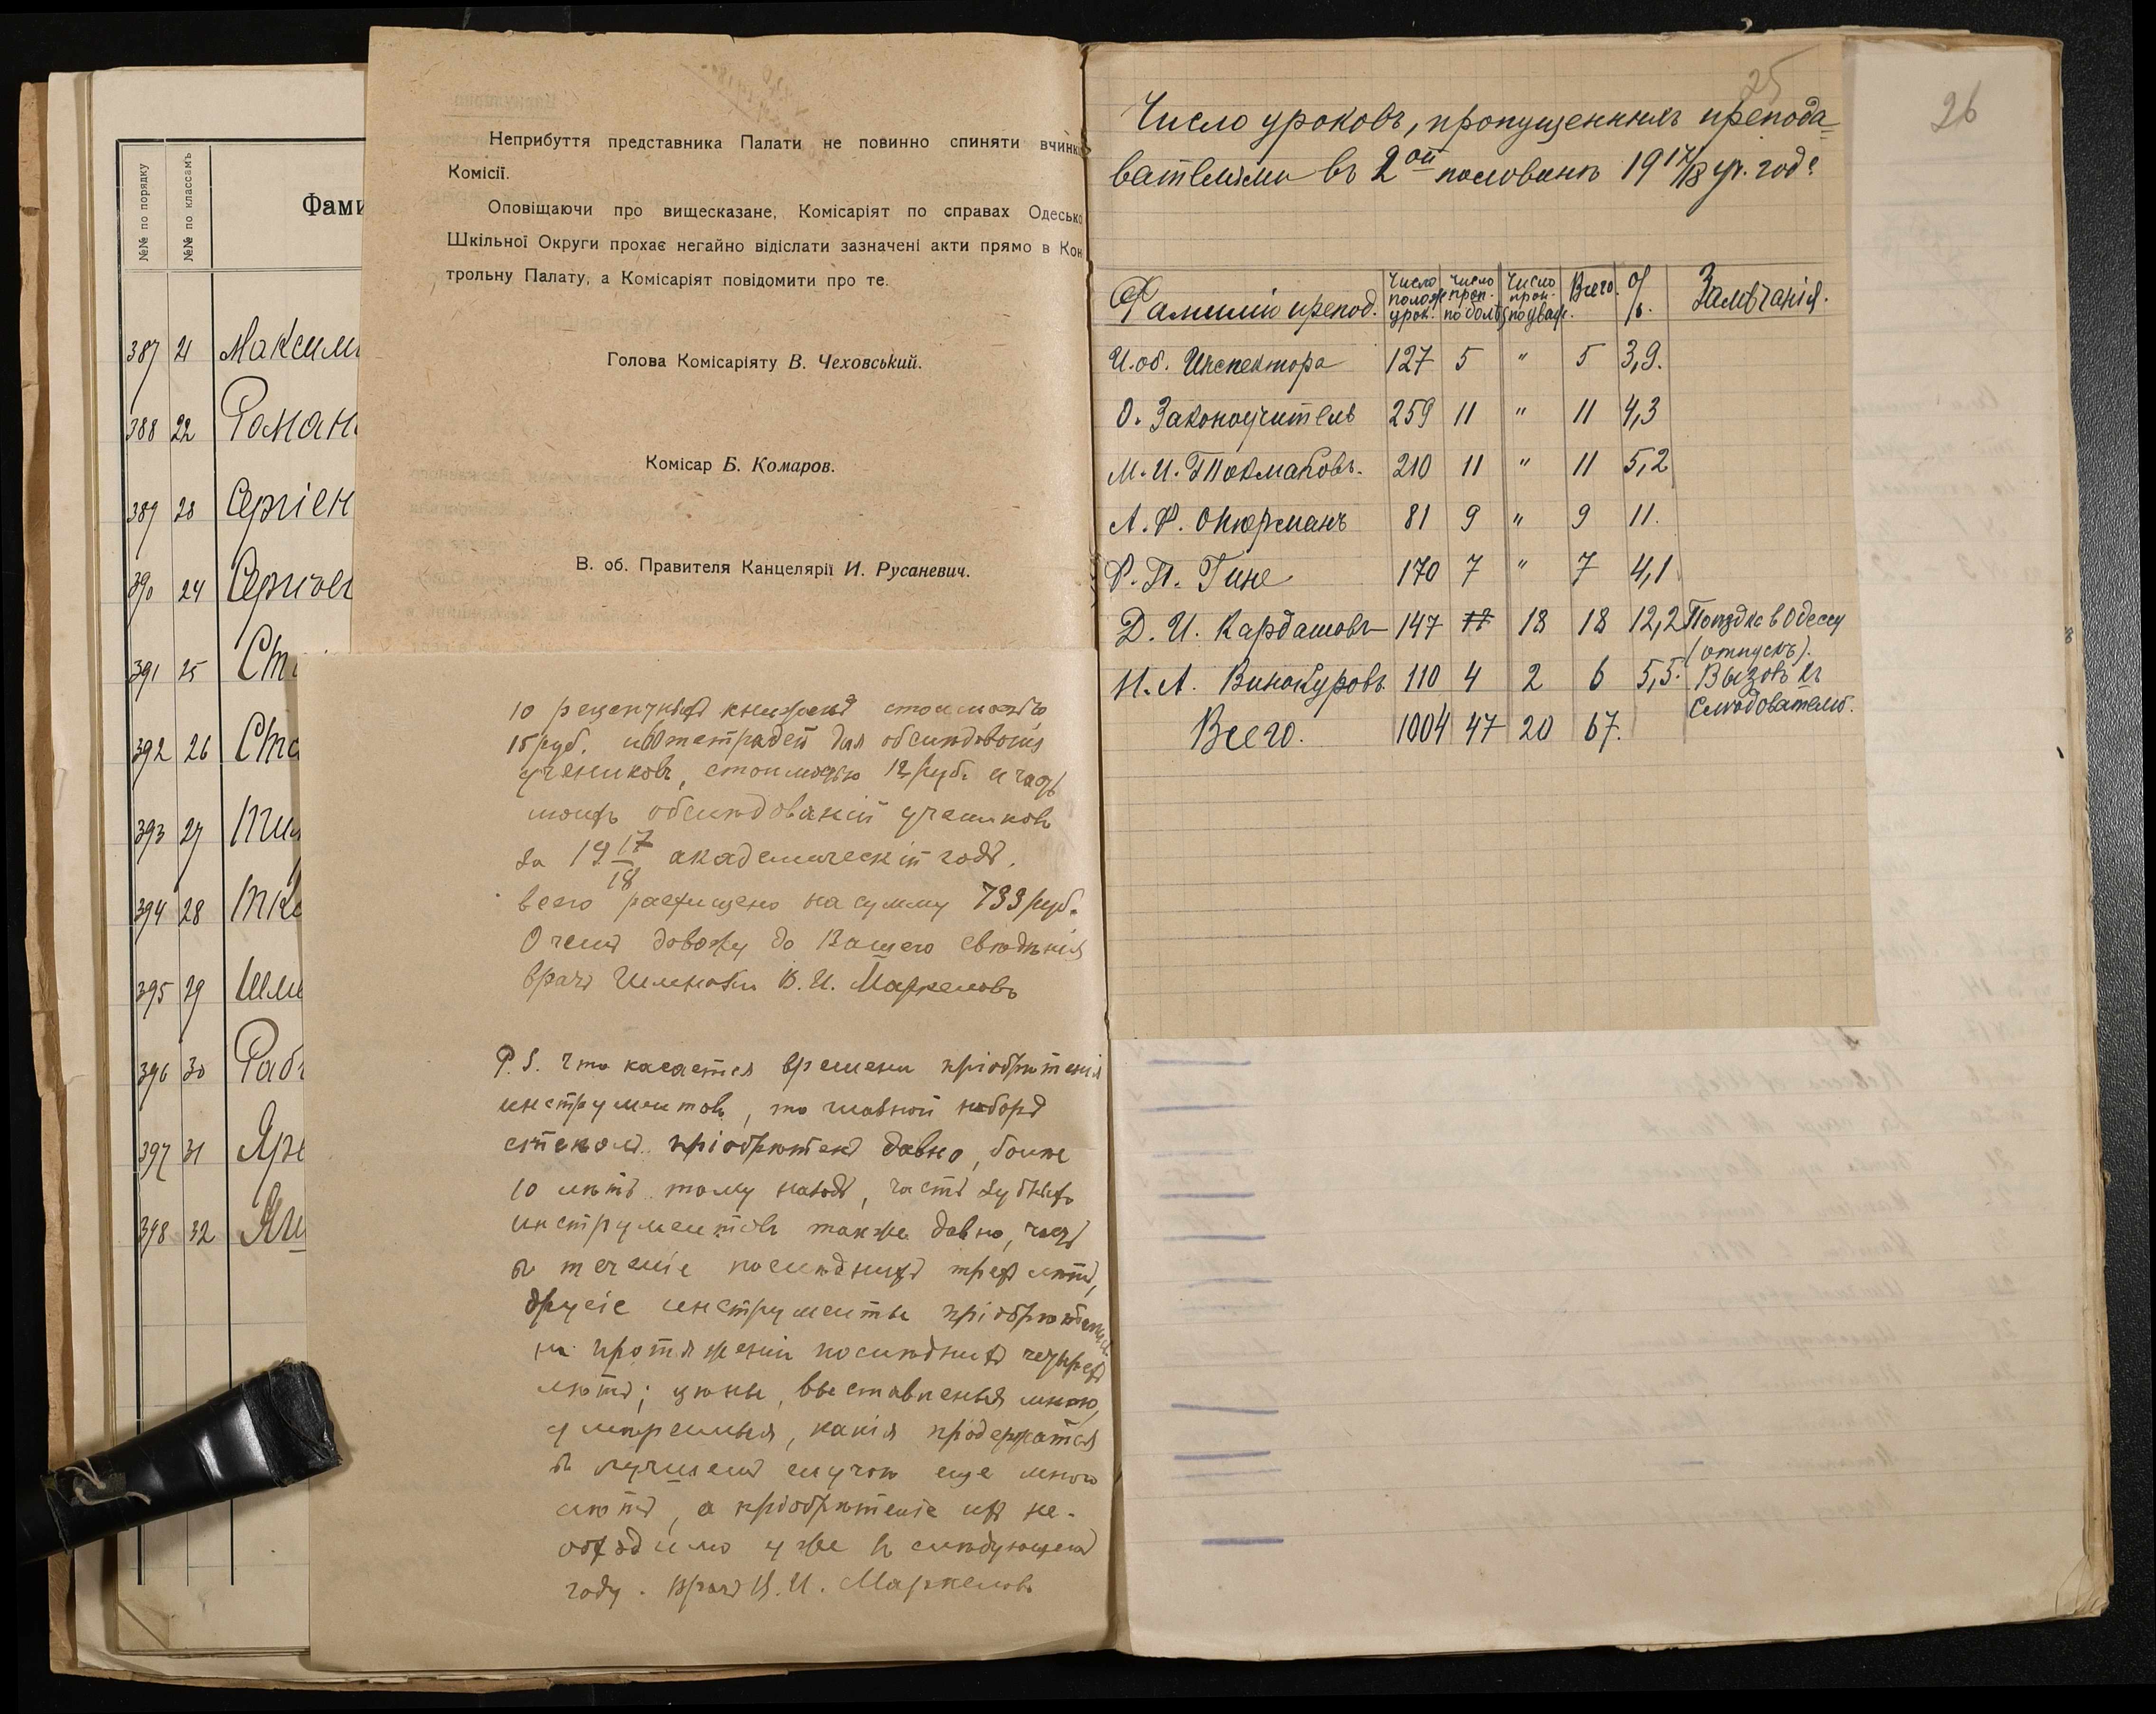 №№ по порядку
№№ по классамъ
Фами
387 21 Максим
388 22 Роман
389 23 Сергіен
390 24 Сергіев
391 25 Ст
392 26 Ста
393 27 Ти
394 28 Тк
395 29
396 30 Раб
397 31 Яре
398 32 Я
Неприбуття представника Палати не повинно спиняти вчинк
Комісії.
Оповіщаючи про вищесказане, Комісаріят по справах Одесько
Шкільної Округи прохає негайно відіслати зазначені акти прямо в Кон
трольну Палату, а Комісаріят повідомити про те.
Голова Комісаріяту В. Чеховський.
Комісар Б. Комаров.
В. об. Правителя Канцелярії И. Русаневич.
10 рецептныхъ книжекъ стоимостью
15 руб. и тетрадей для обслѣдованія
учениковъ, стоимостью 12 руб. и часть
обслѣдованій учениковъ
за 1917/18 академическій годъ.
всего расхищено на сумму 733 руб.
О чемъ довожу до Вашего свѣдѣнія
врачъ Гимназіи В. И. Маркеловъ
P. S. Что касается времени пріобрѣтенія
инструментовъ, то главный наборъ
стеколъ пріобрѣтенъ давно, болѣе
10 лѣтъ тому назадъ, часть зубныхъ
инструментовъ также давно, часть
въ теченіе послѣднихъ трехъ лѣтъ,
другіе инструменты пріобрѣтены
на протяженіи послѣднихъ четырехъ
лѣтъ; цѣны, выставленыя мною,
умѣренныя, какія продержатся
въ лучшемъ случаѣ еще много
лѣтъ, а пріобрѣтеніе ихъ не-
обходимо уже въ слѣдующемъ
году. Врачъ В. И. Маркеловъ
25
26
Число уроковъ, пропущенныхъ препода-
вателями въ 2ой половинѣ 1917/18 уч. года
Фамиліи препод. Число полож. урок. Число проп. по болѣз. Число проп. по уваж. Всего. %. Замѣчанія.
И. об. Инспектора 127 5 " 5 3,9.
О. Законоучитель 259 11 " 11 4,3
М. И. Токмаковъ. 210 11 " 11 5,2
А. Ф. 81 9 " 9 11.
Ф. П. Гине 170 7 " 7 4,1
Д. И. Кардашовъ 147 18 18 12,2 Поѣздка в Одессу
(отпускъ).
Н. А. Винокуровъ. 110 4 2 6 5,5. Вызовъ къ
Слѣдователю.
Всего. 1004 47 20 67.